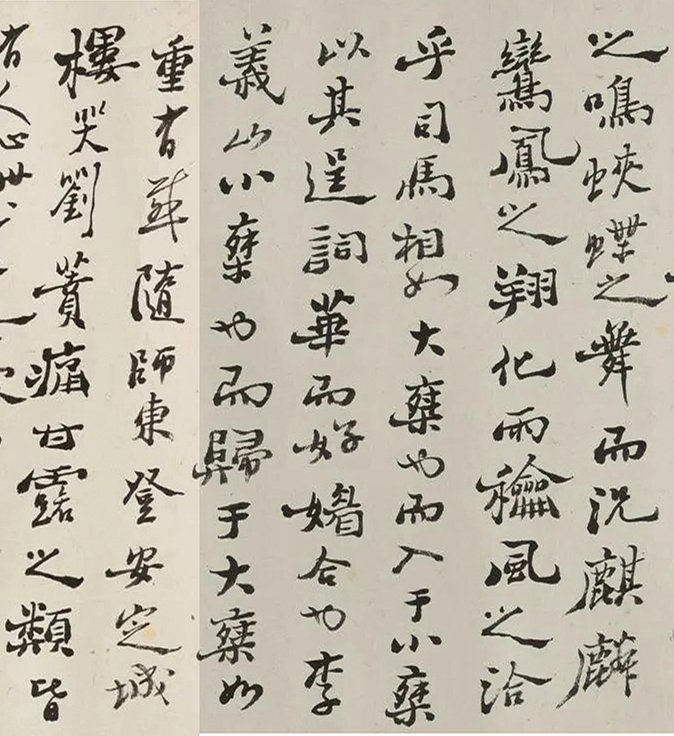 之鳴蛺蝶之舞而況麒麟
鸞鳳之翔化雨龢風之洽
乎司馬相如大乘也而入于小乘
以其逞詞華而好媚合也李
義山小乘也而歸于大乘如
重有感隨師東登安定城
樓哭劉蕡痛甘露之類皆
有人心世